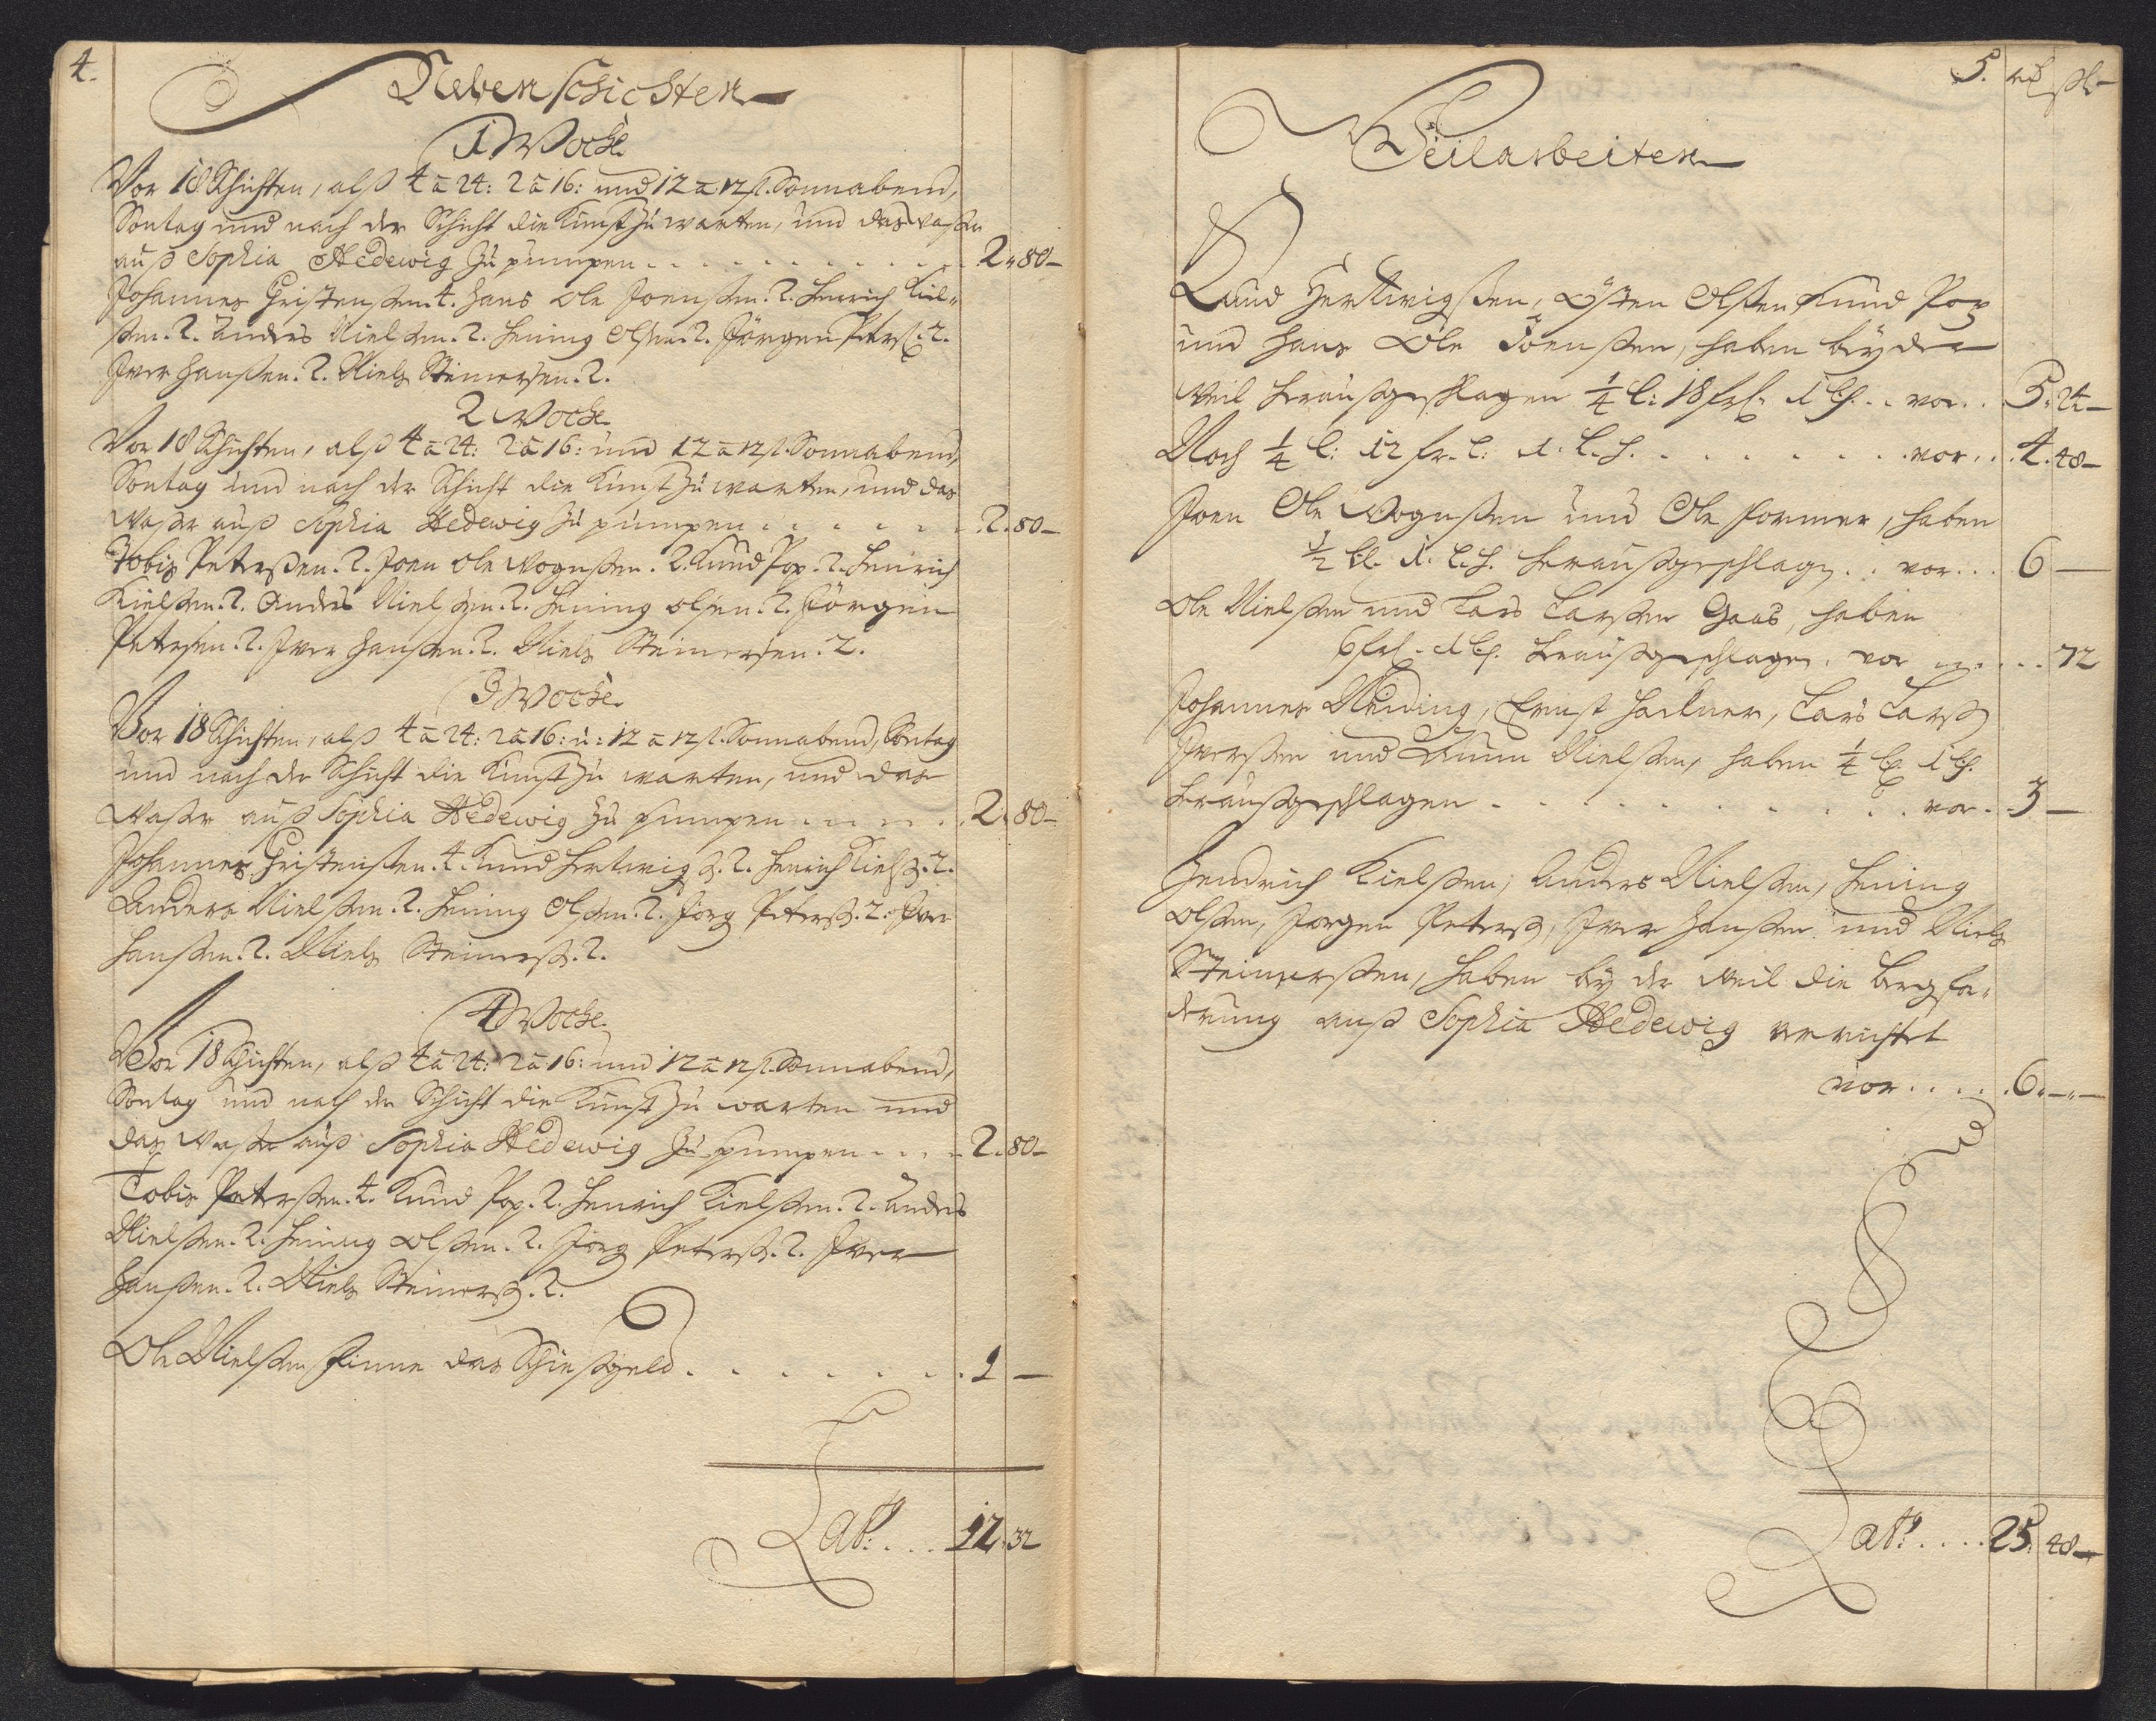 4.
Nebenschichten
1 Woche
Vor 18 Schichten, alß 4 a 24: 2 a 16: und 12 a 12 ß. Sonnabend,
Sontag und nach der Schicht die Kunst zu warten, und das Waßer
auß Sophia Hedewig zu pumpen . . . . . . . . . . 2. 80 –
Johannes Cristenßen. 4. Hans Ole Joenßen. 2. Henrich Kiel-
ßen. 2. Anders Nielßen. 2. Hening Olßen. 2. Jörgen Peterß. 2.
Iver Hanßen. 2. Niels Steinersen. 2.
2 Woche
Vor 18 Schichten, alß 4 a 24: 2 a 16: und 12 a 12 ß. Sonnabend,
Sontag und nach der Schicht die Kunst zu warten, und das
Waßer auß Sophia Hedewig zu pumpen . . . . . . . 2. 80 –
Tobis Peterßen. 2. Joen Ole Vognßen. 2. Knud Pop. 2. Henrich
Kielßen. 2. Anders Nielßen. 2. Hening Olsen. 2. Jörgen
Petersen. 2. Iver Hanßen. 2. Niels Steinersen. 2.
3 Woche
Vor 18 Schichten, alß 4 a 24: 2 a 16: u: 12 a 12 ß. Sonnabend, Sontag
und nach der Schicht die Kunst zu warten, und das
Waßer auß Sophia Hedewig zu pumpen . . . . . 2. 80 –
Johannes Cristenßen. 4. Knud Hertwigß. 2. Henrich Kielß. 2.
Anders Nielßen. 2. Hening Olßen. 2. Jörg Peterß. 2. Iver
Hanßen. 2. Niels Steinerß. 2.
4 Woche
Vor 18 Schichten, alß 4 a 24: 2 a 16: und 12 a 12 ß. Sonnabend,
Sontag und nach der Schicht die Kunst zu warten und
das Waßer auß Sophia Hedewig zu pumpen . . . . 2. 80 –
Tobis Peterßen. 4. Knud Pop. 2. Henrich Kielßen. 2. Anders
Nielßen. 2. Hening Olßen. 2. Jörg Peterß. 2. Iver
Hanßen. 2. Niels Steinerß. 2.
Ole Nielßen Finne das Schießgeld . . . . . . . 1 –
Lat: . . . 12. 32
5. rd ß
Weilarbeiten
Knud Hertwigßen, Östen Olßen Knud Pop
und Hans Ole Joenßen, haben bey der
Weil heraußgeschlagen 1/4 l: 18 frl. 1 l.h. . . vor . . 5. 24 –
Noch 1/4 l: 12 fr. l: 1. l. h. . . . . . . . . vor . . 4. 48 –
Joen Ole Vognßen und Ole Former, haben
1/2 l. 1. l.h. heraußgeschlagen . . vor . . . 6 –
Ole Nielßen und Lars Larßen Gaas, haben
6 frl. 1 l.h. heraußgeschlagen . vor . . . . . 72
Johannes Meiding, Ernst Hackner, Lars Larß
Iverßen und Nielßen, haben 1/4 l. 1 l.h.
heraußgeschlagen . . . . . . . . . . vor . . 3 –
Hendrich Kielßen, Anders Nielßen, Hening
Olßen, Jorgen Peterß, Iver Hanßen und Niels
Steinerßen, haben bey der Weil die Bergfo-
derung auß Sophia Hedewig verrichtet
vor . . . . . 6. – . –
Lat: . . . . 25. 48 –